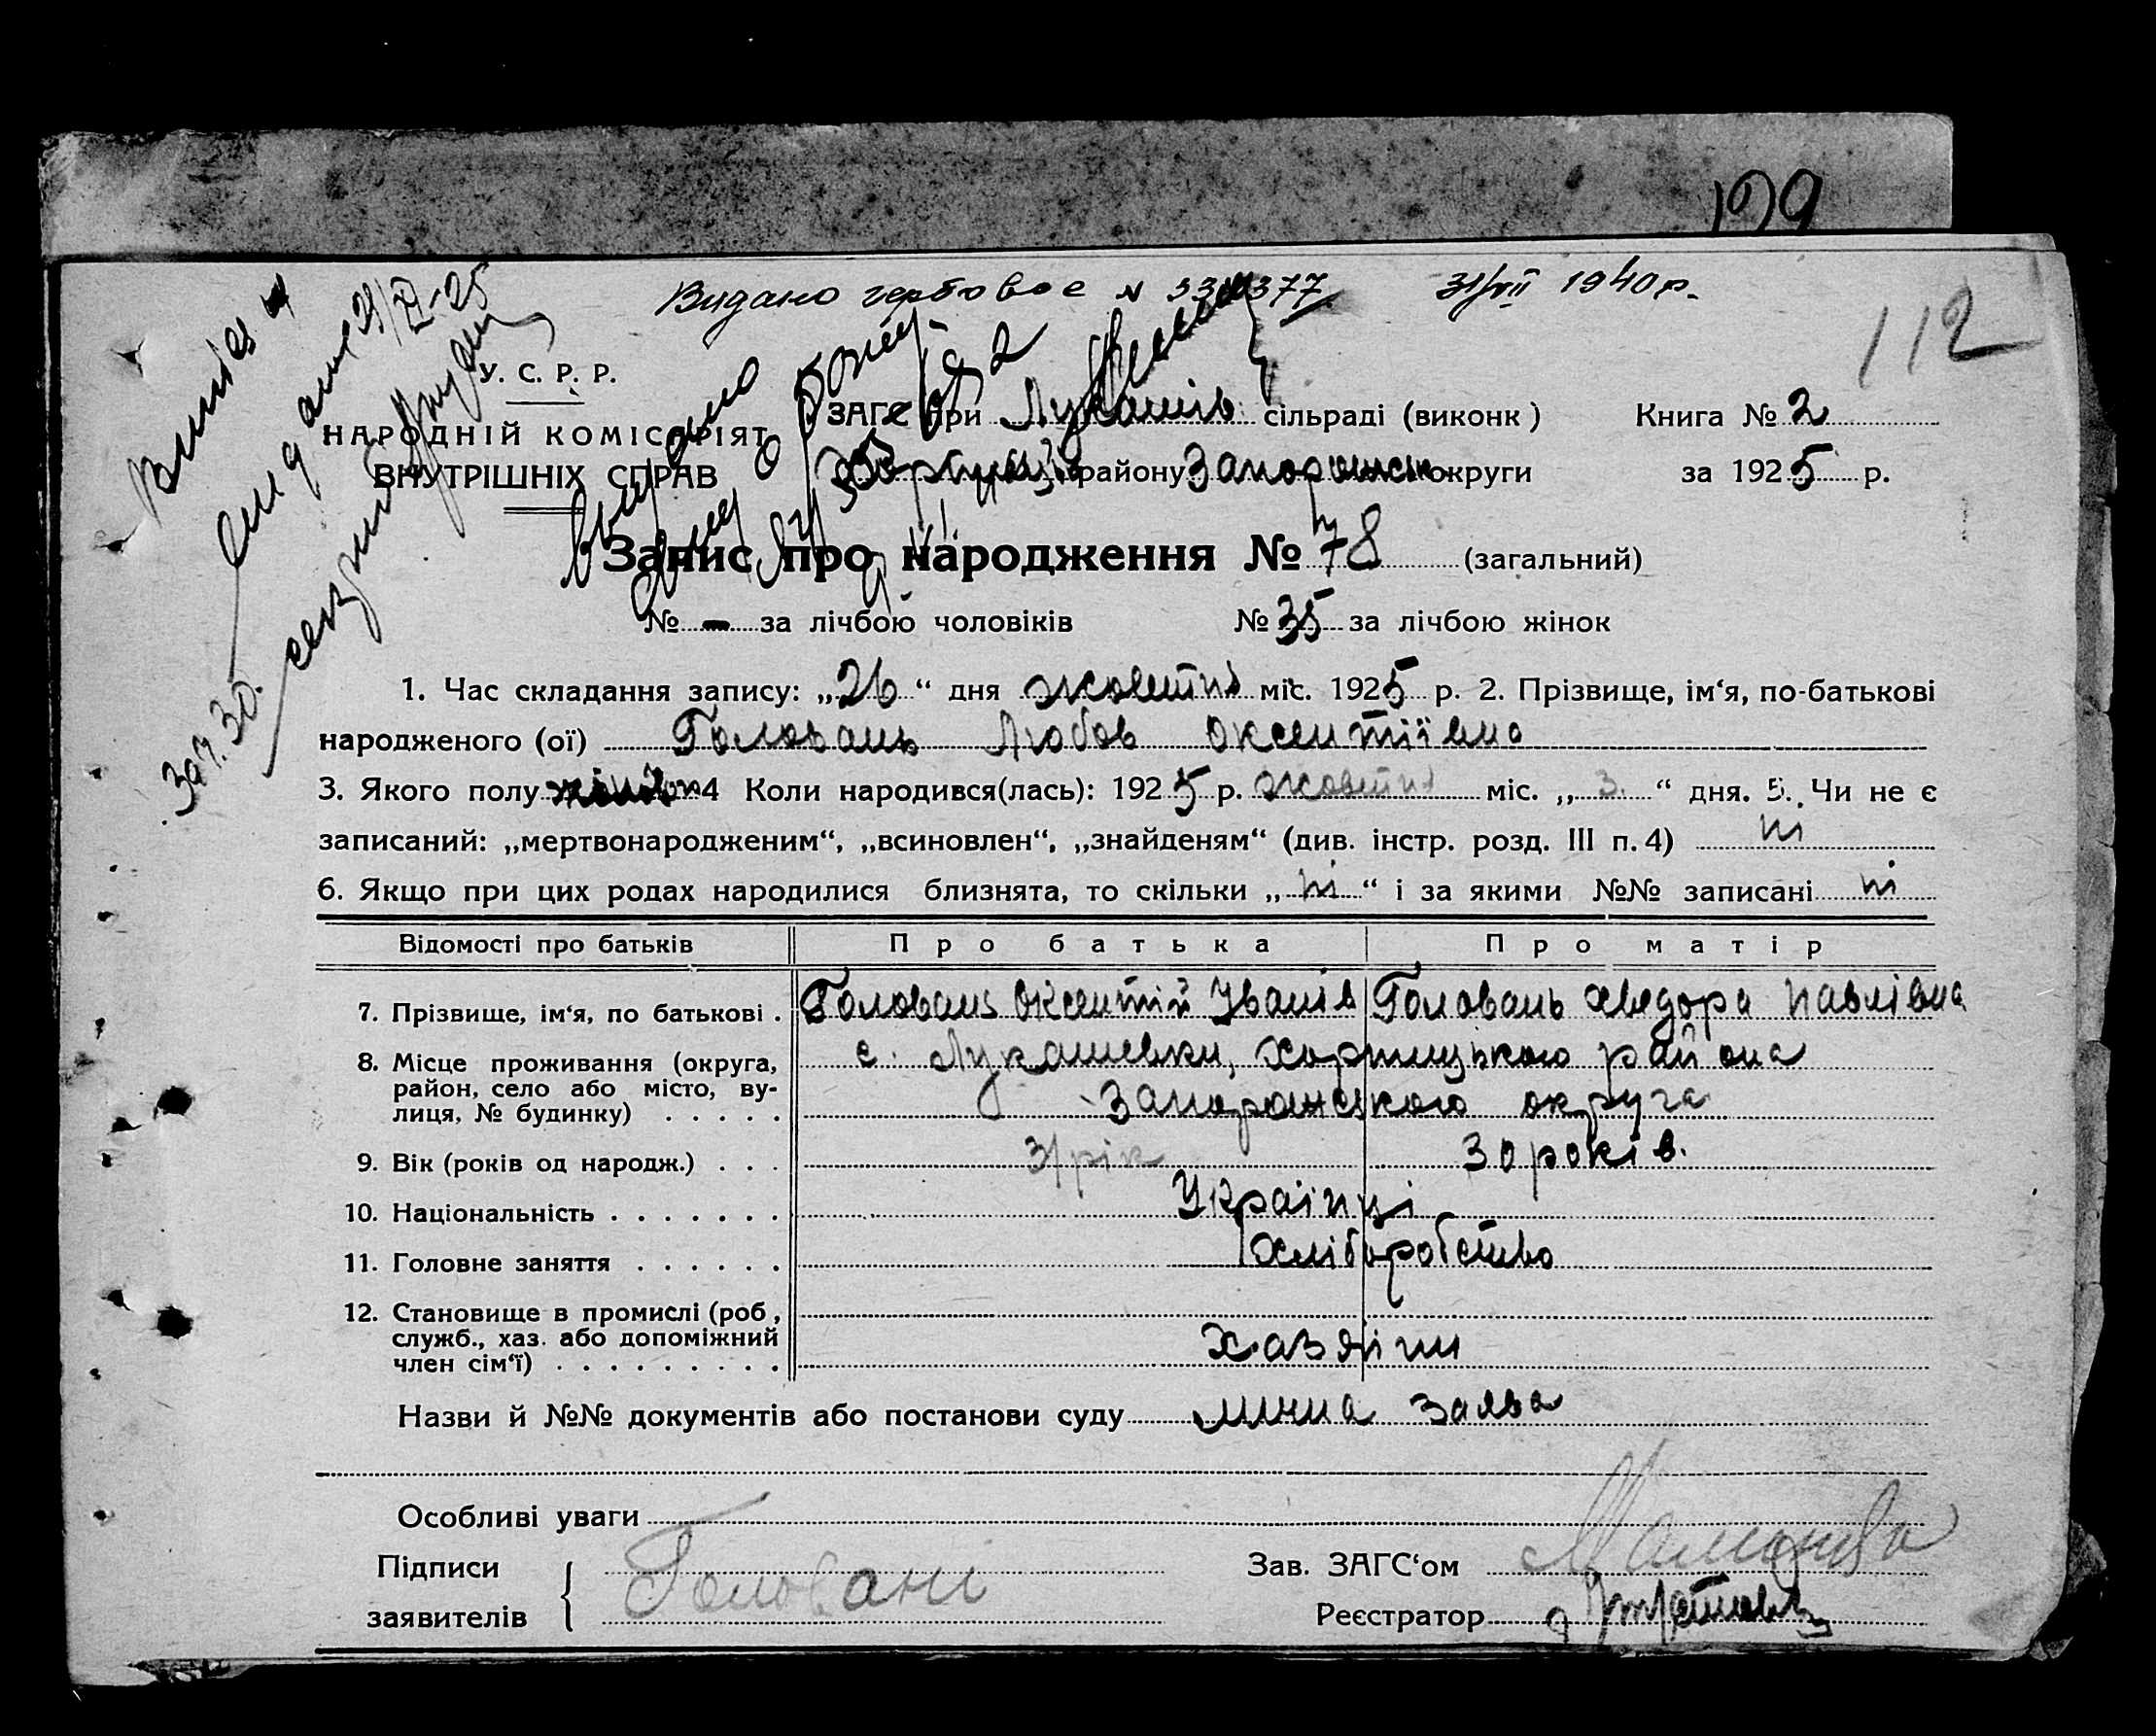 199
Видано гербове N 1940 р.
112
У. С. Р. Р.
НАРОДНІЙ КОМІСАРІЯТ
ВНУТРІШНІХ СПРАВ
ЗАГС при Лукашів сільраді (виконк) Книга № 2
Хортицьк району Запорожськ округи за 1925 р.
Запис про народження № 78 (загальний)
№ - за лічбою чоловіків № 35 за лічбою жінок
1. Час складання запису: „26“ дня жовтня міс. 1925 р. 2. Прізвище, ім‘я, по-батькові
народженого (ої) Головань Любов Оксентіївна
3. Якого полу 4 Коли народився(лась): 1925 р. жовтня міс. „3.“ дня. 5. Чи не є
записаний: „мертвонародженим“, „всиновлен“, „знайденям“ (див. інстр. розд. III п. 4) ні
6. Якщо при цих родах народилися близнята, то скільки „ні“ і за якими №№ записані ні
Відомості про батьків Про батька Про матір
7. Прізвище, ім‘я, по батькові . Головань Оксентій Іванів Головань Хведора Павлівна
8. Місце проживання (округа, с. Лукашевки, Хортицького района
район, село або місто, ву-
лиця, № будинку) . . . . . Запорожського округа
9. Вік (років од народж.) . . . 31 рік 30 років.
10. Національність . . . . . . . Українці
11. Головне заняття . . . . . . Хліборобство
12. Становище в промислі (роб.,
служб., хаз. або допоміжний Хазяїни
член сім‘ї) . . . . . . . . .
Назви й №№ документів або постанови суду лична заява
Особливі уваги
Підписи Головані Зав. ЗАГС‘ом
заявителів Реєстратор